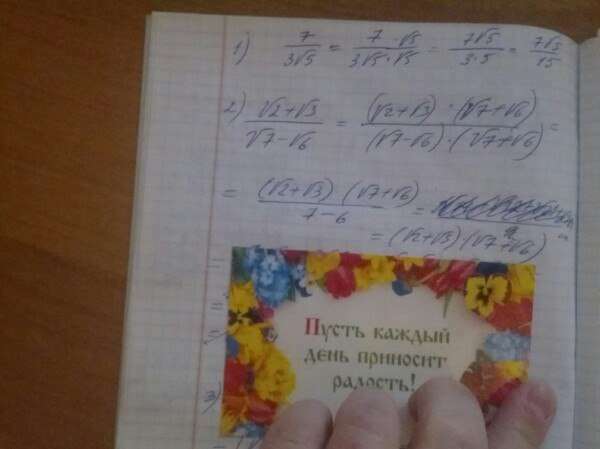 1) 7/(3√5) = (7 · √5)/(3√5 · √5) = 7√5/(3·5) = 7√5/15
2) (√2+√3)/(√7−√6) = ((√2+√3) · (√7+√6))/((√7−√6) · (√7+√6)) =
= ((√2+√3) (√7+√6))/(7−6) =
= (√2+√3) · (√7+√6)
Пусть каждый
день приносит
радость!
3)